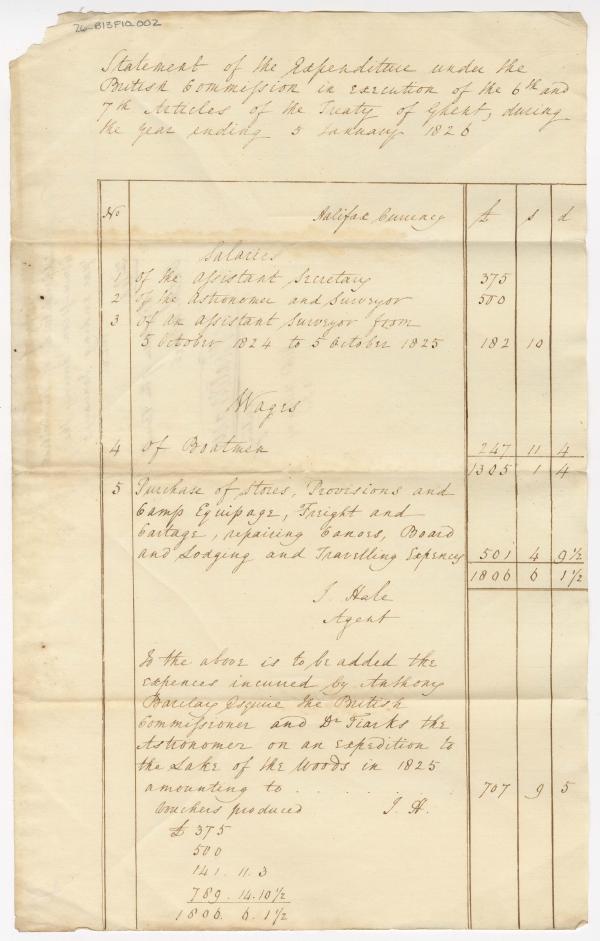 76-B13F10.002
Statement of the Expenditure under the
British Commission in execution of the 6th and
7th Articles of the Treaty of Ghent, during
the year ending 5 January 1826
No Halifax Currency £ s d
Salaries
1 Of the Assistant Secretary 375
2 Of the Astronomer and Surveyor 500
3 Of an Assistant Surveyor from
5 October 1824 to 5 October 1825 182 10
Wages
4 Of Boatmen 247 11 4
1305 1 4
5 Purchase of Stores, Provisions and
Camp Equipage, Freight and
Cartage, repairing Canoes, Board
and Lodging and Travelling Expences 501 4 9½
1806 6 1½
J. Hale
Agent
To the above is to be added the
expences incurred by Anthony
Barclay Esquire the British
Commissioner and Dr Tiarks the
Astronomer on an expedition to
the Lake of the Woods in 1825
amounting to . . . . . . . . 707 9 5
Vouchers produced J. H.
£ 375
500
141. 11. 3
789. 14. 10½
1806. 6. 1½